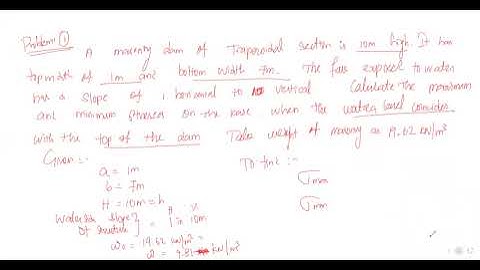 Problem ①
A masonry dam of Trapezoidal section is 10m high. It has
top width of 1m and bottom width 7m. The face exposed to water
has a slope of 1 horizontal to 10 vertical Calculate the maximum
and minimum stresses on the base when the water level coincides
with the top of the dam Take weight of masonry as 19.62 kN/m³
Given :- To find :-
a = 1m σmax
b = 7m σmin
H = 10m = h
Water side slope of structure } = 1 in 10m
ω₀ = 19.62 kN/m³ =
ω = 9.81 kN/m³